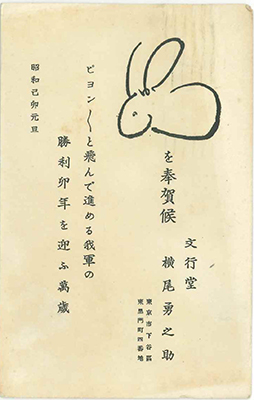 を奉賀候
文行堂
横尾勇之助
東京市下谷區
東黒門町四番地
ピヨン〳〵と飛んで進める我軍の
勝利卯年を迎ふ萬歳
昭和己卯元旦